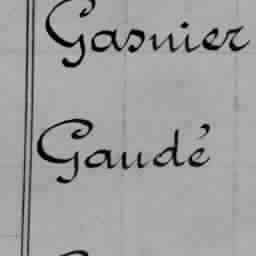 Gasnier
Gaudé